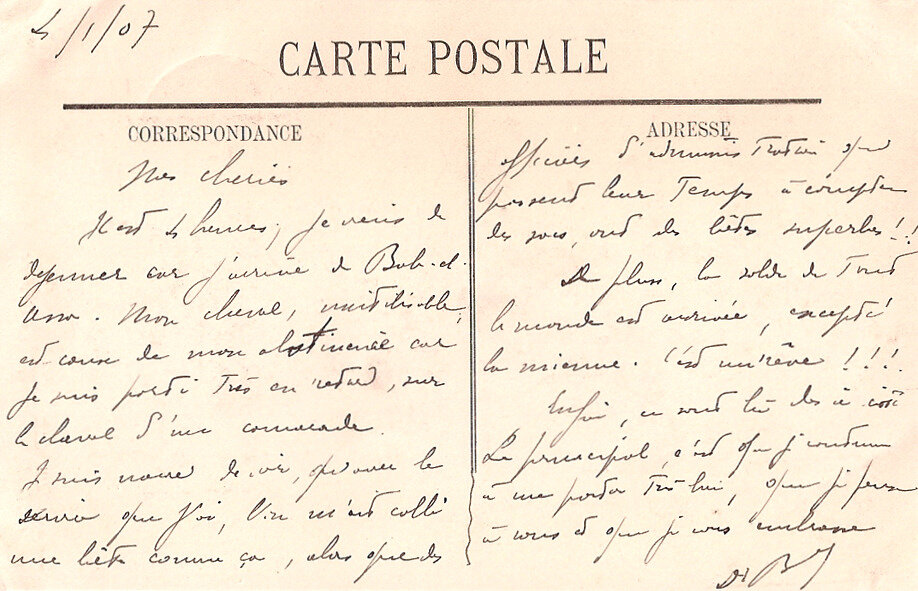 4/1/07
CARTE POSTALE
CORRESPONDANCE
Mes chéries
Il est 4 heures, je viens de
déjeuner car j'arrive de Bab-el-
Assa. Mon cheval, inutilisable,
est cause de mon abstinence car
je suis parti très en retard, sur
le cheval d'un camarade.
Je suis navré de voir, qu'avec le
service que j'ai, l'on m'ait collé
une bête comme ça, alors que des
ADRESSE
officiers d'administration qui
passent leur temps à compter
des sous, ont des bêtes superbes!!
De plus, la solde de tout
le monde est arrivée, excepté
la mienne. C'est un rêve!!!
Enfin, ce sont là des à côté
Le principal, c'est que je continue
à me porter très bien, que je pense
à vous et que je vous embrasse